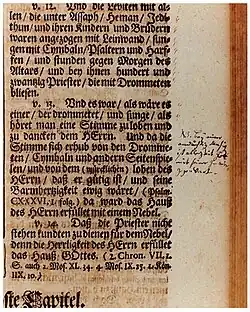 v. 12. Und die Leviten mit al-
len / die unter Assaph / Heman / Jedi-
thun / und ihren Kindern und Brüdern
waren angezogen mit Leinwand / sun-
gen mit Cymbaln / Psaltern und Harf-
fen / und stunden gegen Morgen des
Altars / und bey ihnen hundert und
zwantzig Priester / die mit Drommeten
bliesen.
v. 13. Und es war / als wäre es
einer / der drommetet / und sunge / als
höret man eine Stimme zu loben und
zu dancken dem HErrn. Und da die
Stimme sich erhub von den Dromme-
ten / Cymbaln und andern Seitenspie-
len / und von dem (würcklichen) loben des
HErrn / daß er gütig ist / und seine
Barmhertzigkeit ewig währet / (Psalm
CXXXVI. 1. folg.) da ward das Hauß
des HErrn erfüllet mit einem Nebel.
v. 14. Daß die Priester nicht
stehen kundten zu dienen für dem Nebel /
denn die Herrligkeit des HErrn erfüllet
das Hauß GOttes. (2. Chron. VII. 1.
S. auch 2. Mos. XL. 34. 4. Mos. IX. 15. 1. Kön.
IIX. 10.)
ste Capitel.